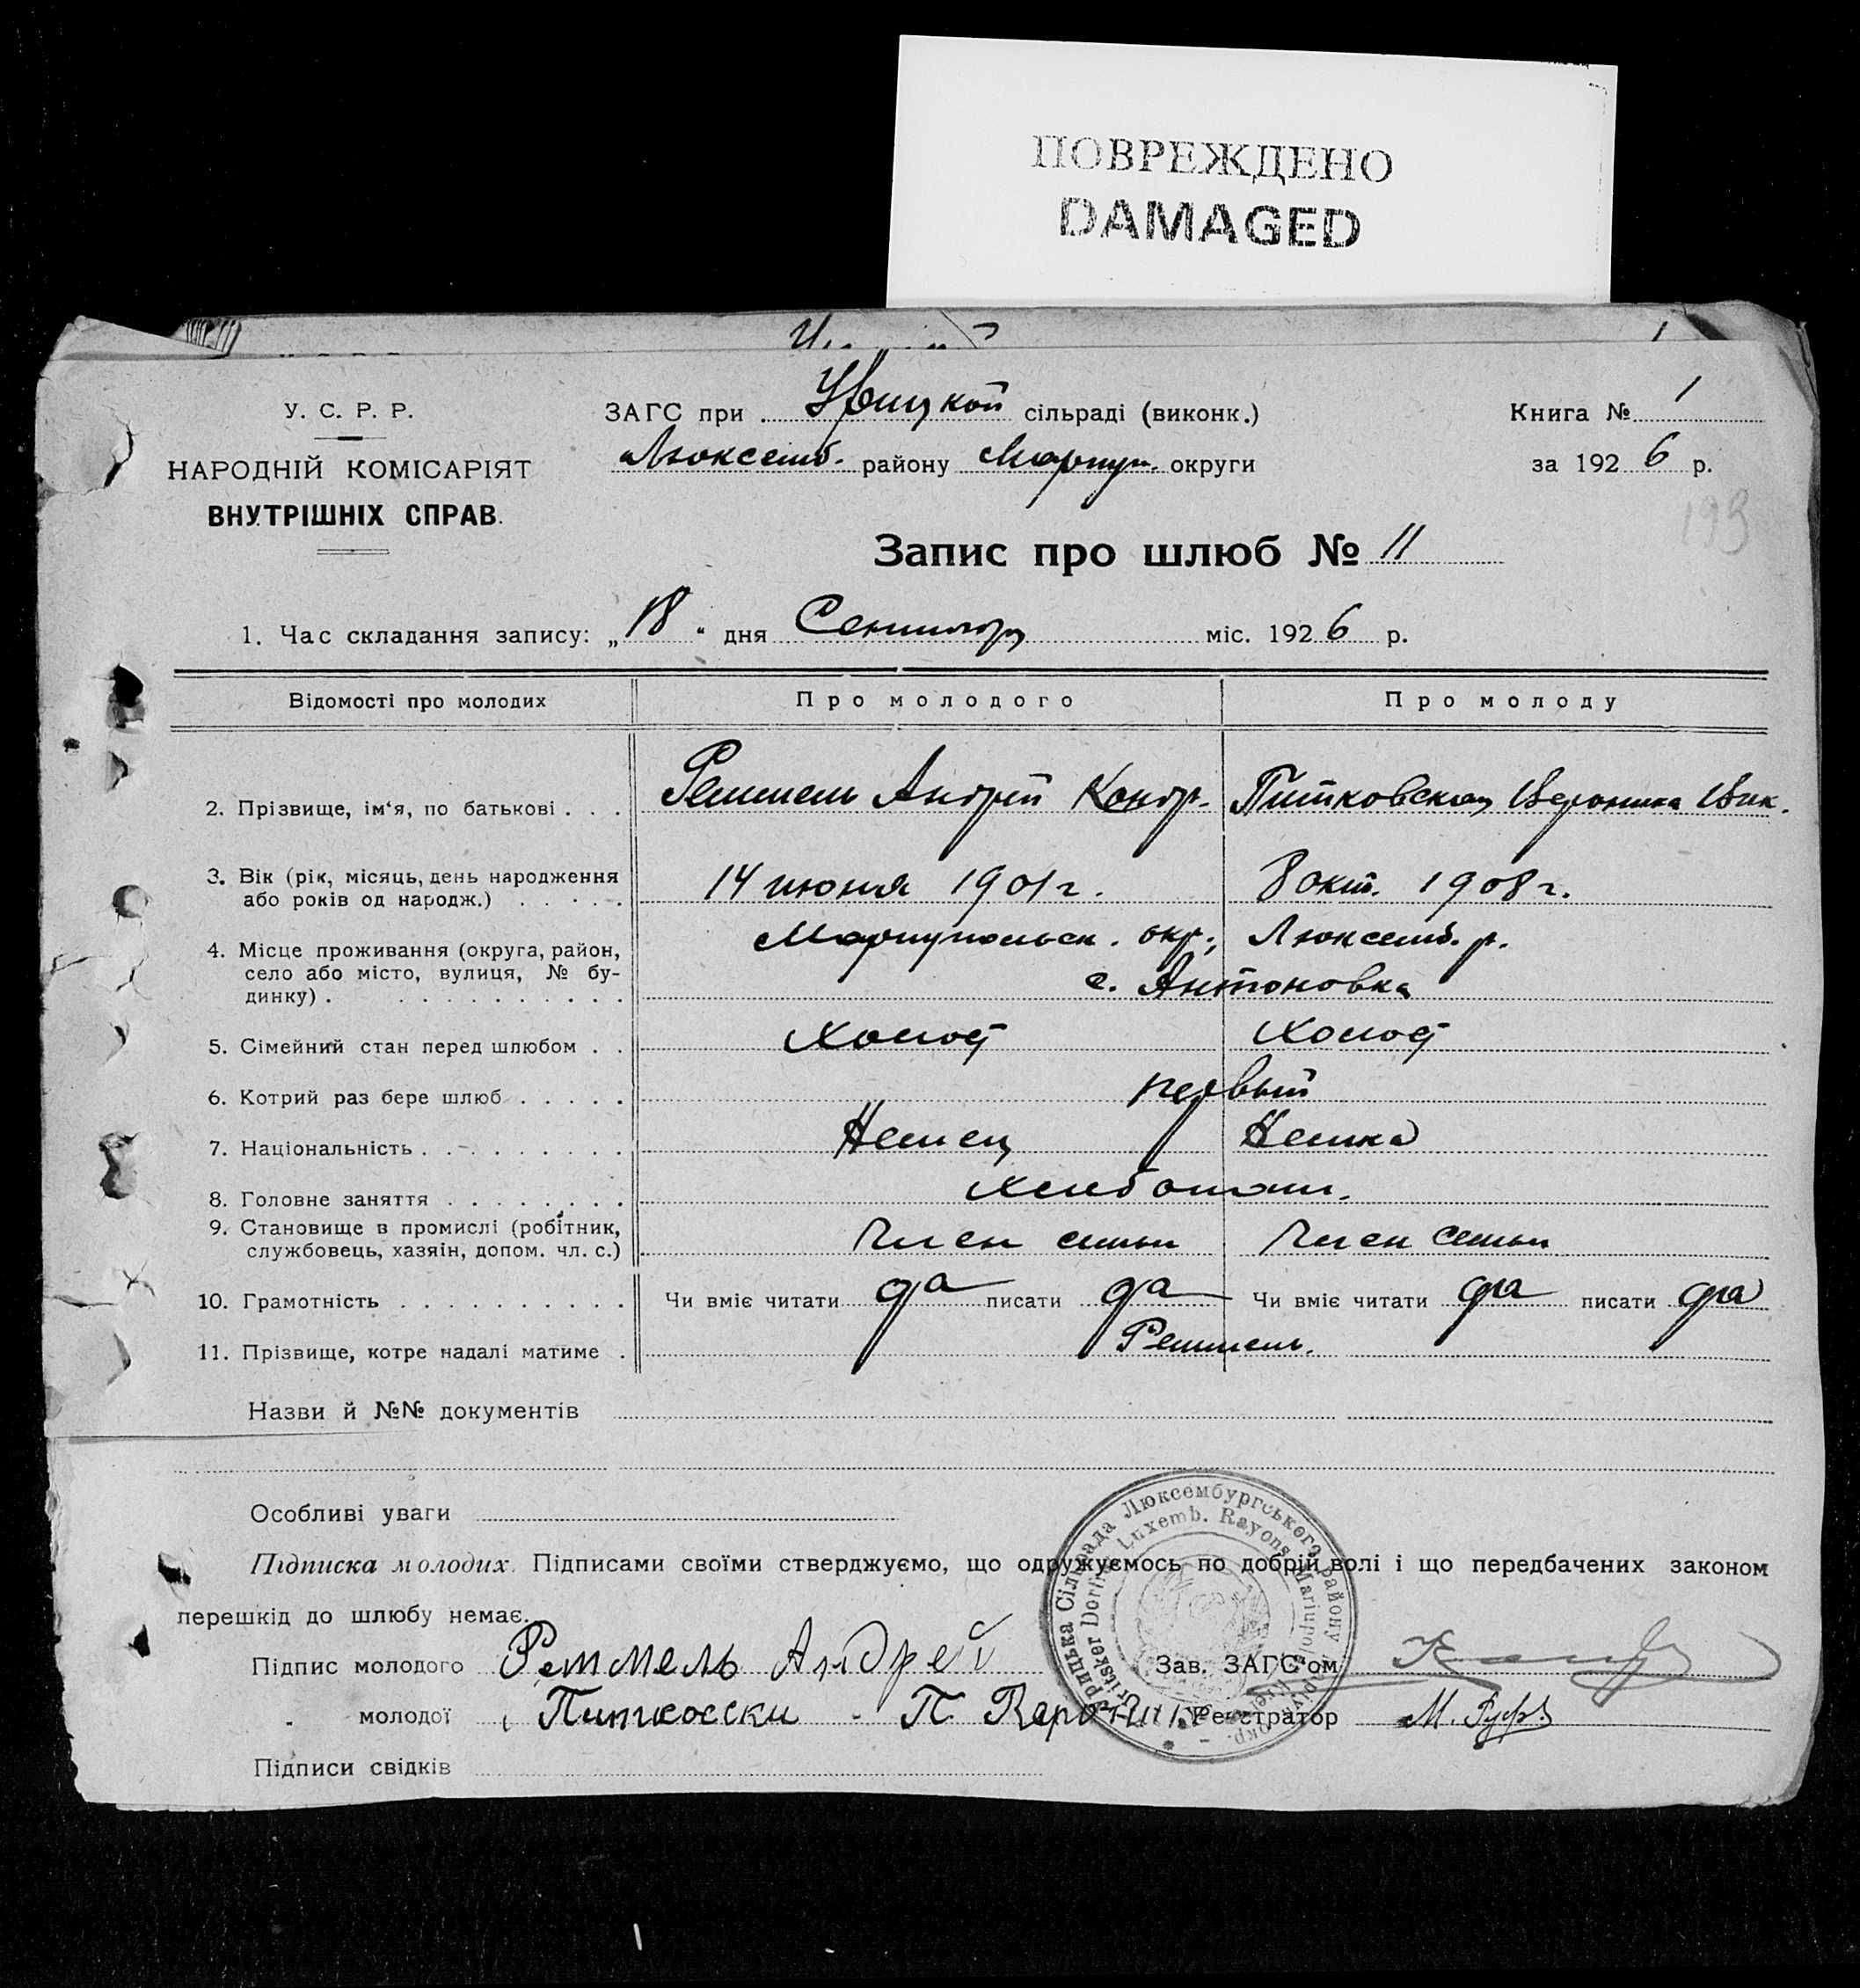 ПОВРЕЖДЕНО
DAMAGED
У. С. Р. Р.
НАРОДНІЙ КОМІСАРІЯТ
ВНУТРІШНІХ СПРАВ.
ЗАГС при сільраді (виконк.)
Люксемб. району Мариуп. округи
Книга № 1
за 1926 р.
193
Запис про шлюб № 11
1. Час складання запису: „18" дня Сентября міс. 1926 р.
Відомості про молодих Про молодого Про молоду
2. Прізвище, ім'я, по батькові . . . Реттель Андрей Кондр. Питковская Вероника Вик.
3. Вік (рік, місяць, день народження
або років од народж.) . . . . . 14 июня 1901 г. 8 окт. 1908 г.
4. Місце проживання (округа, район, Мариупольск. окр., Люксемб. р.
село або місто, вулиця, № бу-
динку) . . . . . . . . . . . с. Антоновка
5. Сімейний стан перед шлюбом . . Холост Холост
6. Котрий раз бере шлюб . . . . . первый
7. Національність . . . . . . . . . Немец Немка
8. Головне заняття . . . . . . . . хлебопаш.
9. Становище в промислі (робітник,
службовець, хазяін, допом. чл. с.) Член семьи Член семьи
10. Грамотність . . . . . . . . . . Чи вміє читати да писати да Чи вміє читати да писати да
11. Прізвище, котре надалі матиме . Реттель.
Назви й №№ документів
Особливі уваги
Підписка молодих. Підписами своїми стверджуємо, що одружуємось по добрій волі і що передбачених законом
перешкід до шлюбу немає.
Сільрада Люксембургського району
Luxemb. Rayons Mariupoler
Підпис молодого Андрей Зав. ЗАГС'ом
" молодої Питковски П. Реєстратор М.
Підписи свідків